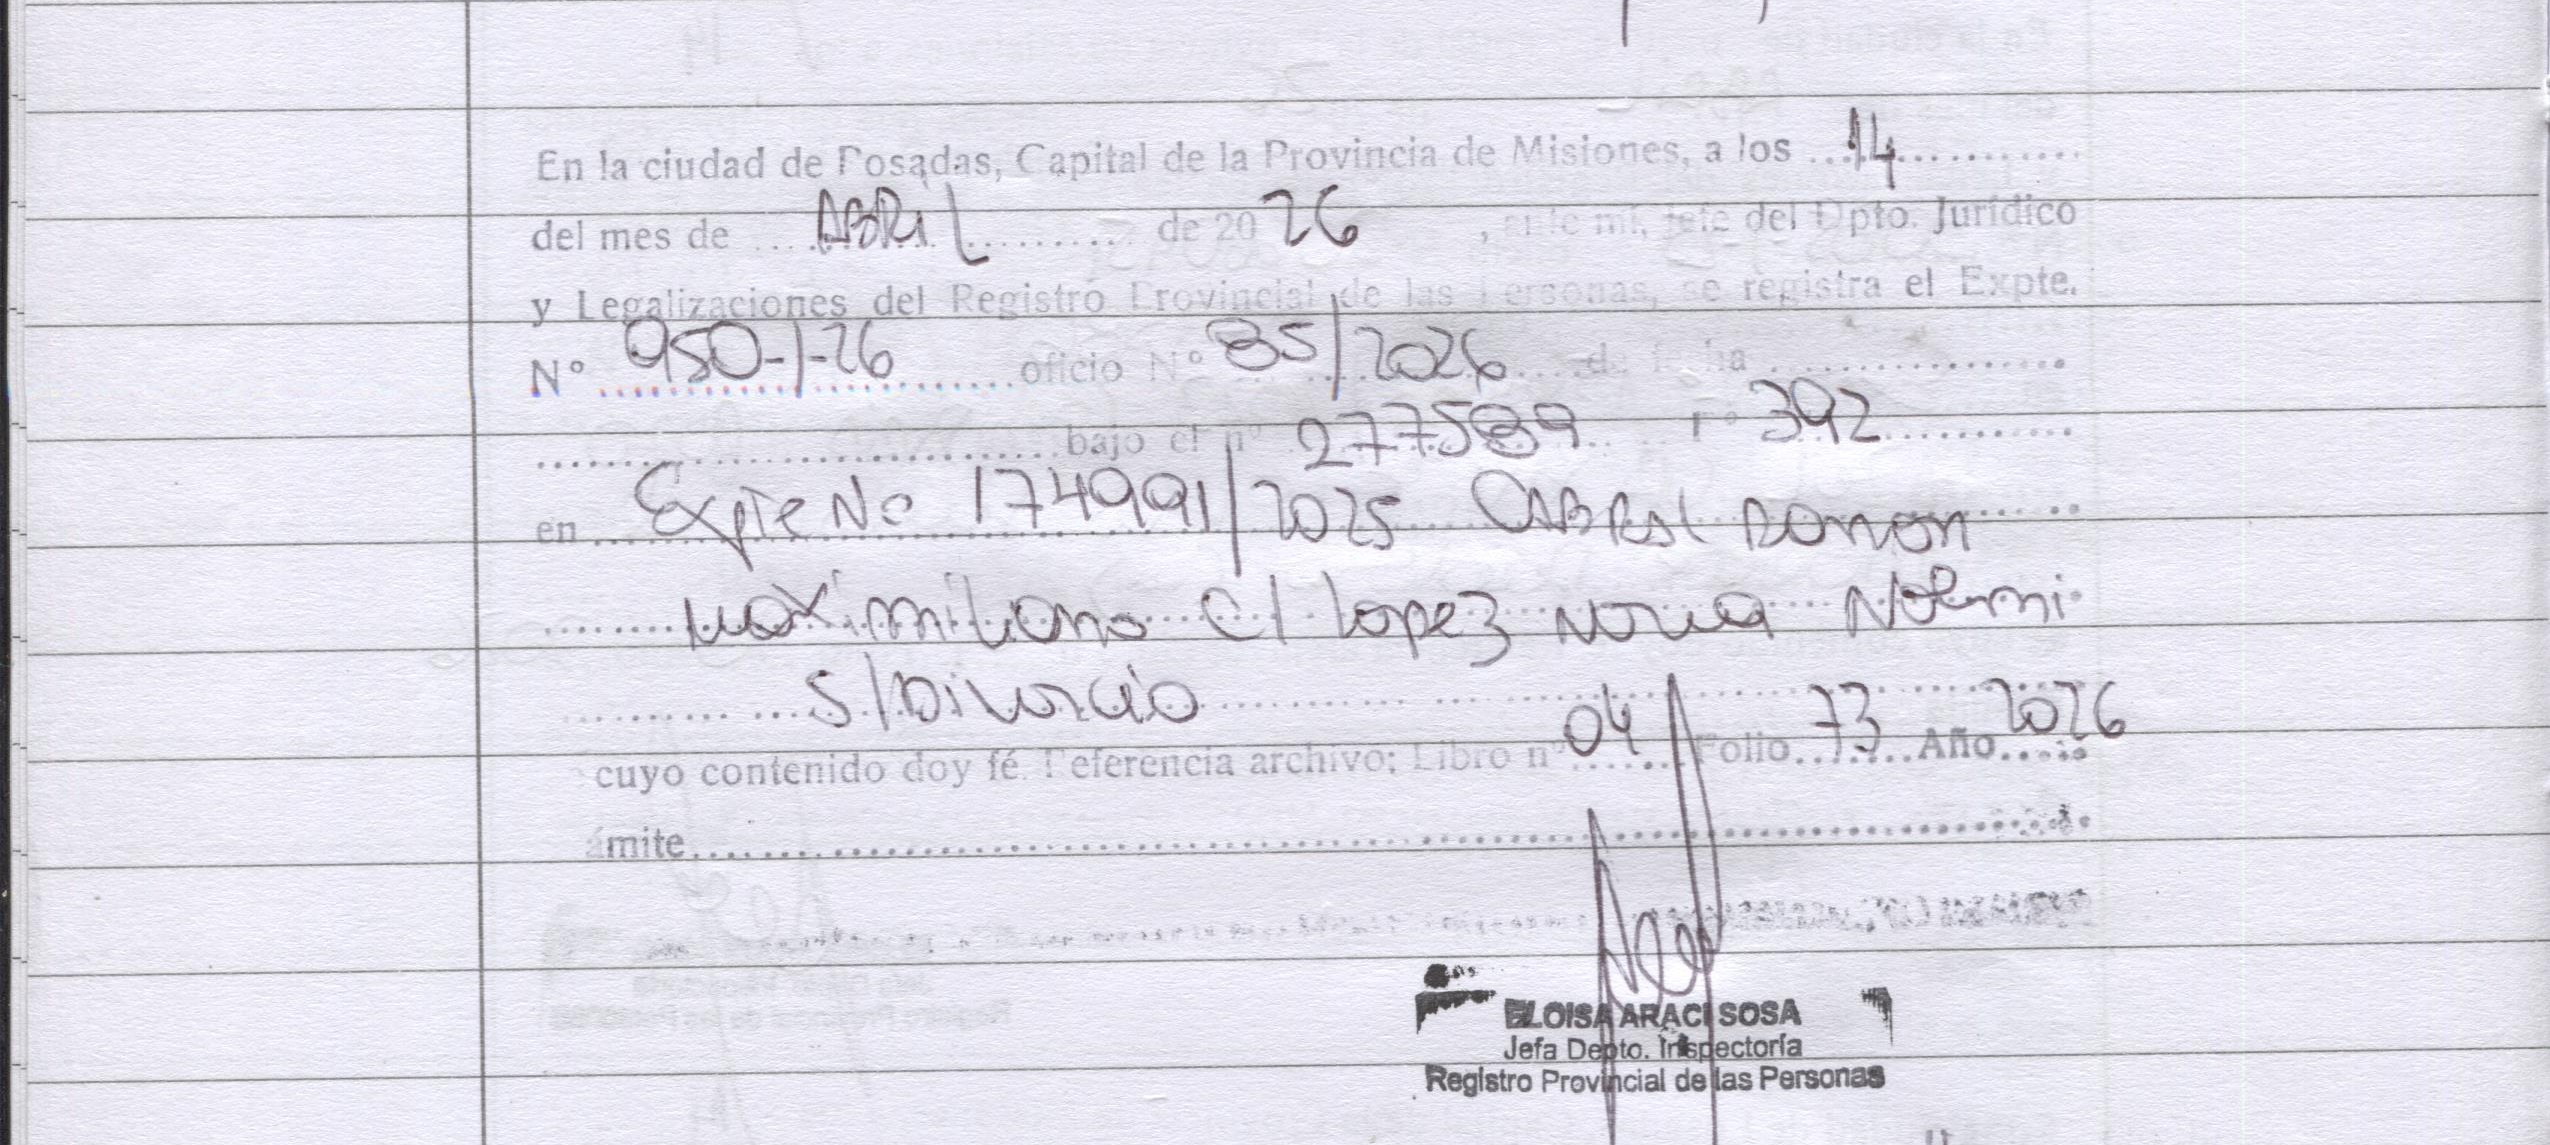 En la ciudad de Posadas, Capital de la Provincia de Misiones, a los 14
del mes de ABRIL de 20 26, ante mí, jefe del Dpto. Jurídico
y Legalizaciones del Registro Provincial de las Personas, se registra el Expte.
N° 950-1-26 oficio N° 85/2026 de fecha
bajo el n° 277589 F° 392
en Expte No 174991/2025 CABRAL RAMON
MAXIMILIANO c/ LOPEZ NORMA NOEMI
S/DIVORCIO
cuyo contenido doy fé. Referencia archivo; Libro n° 04 Folio 73 Año 2026
ámite
ELOISA ARACI SOSA
Jefa Depto. Inspectoría
Registro Provincial de las Personas